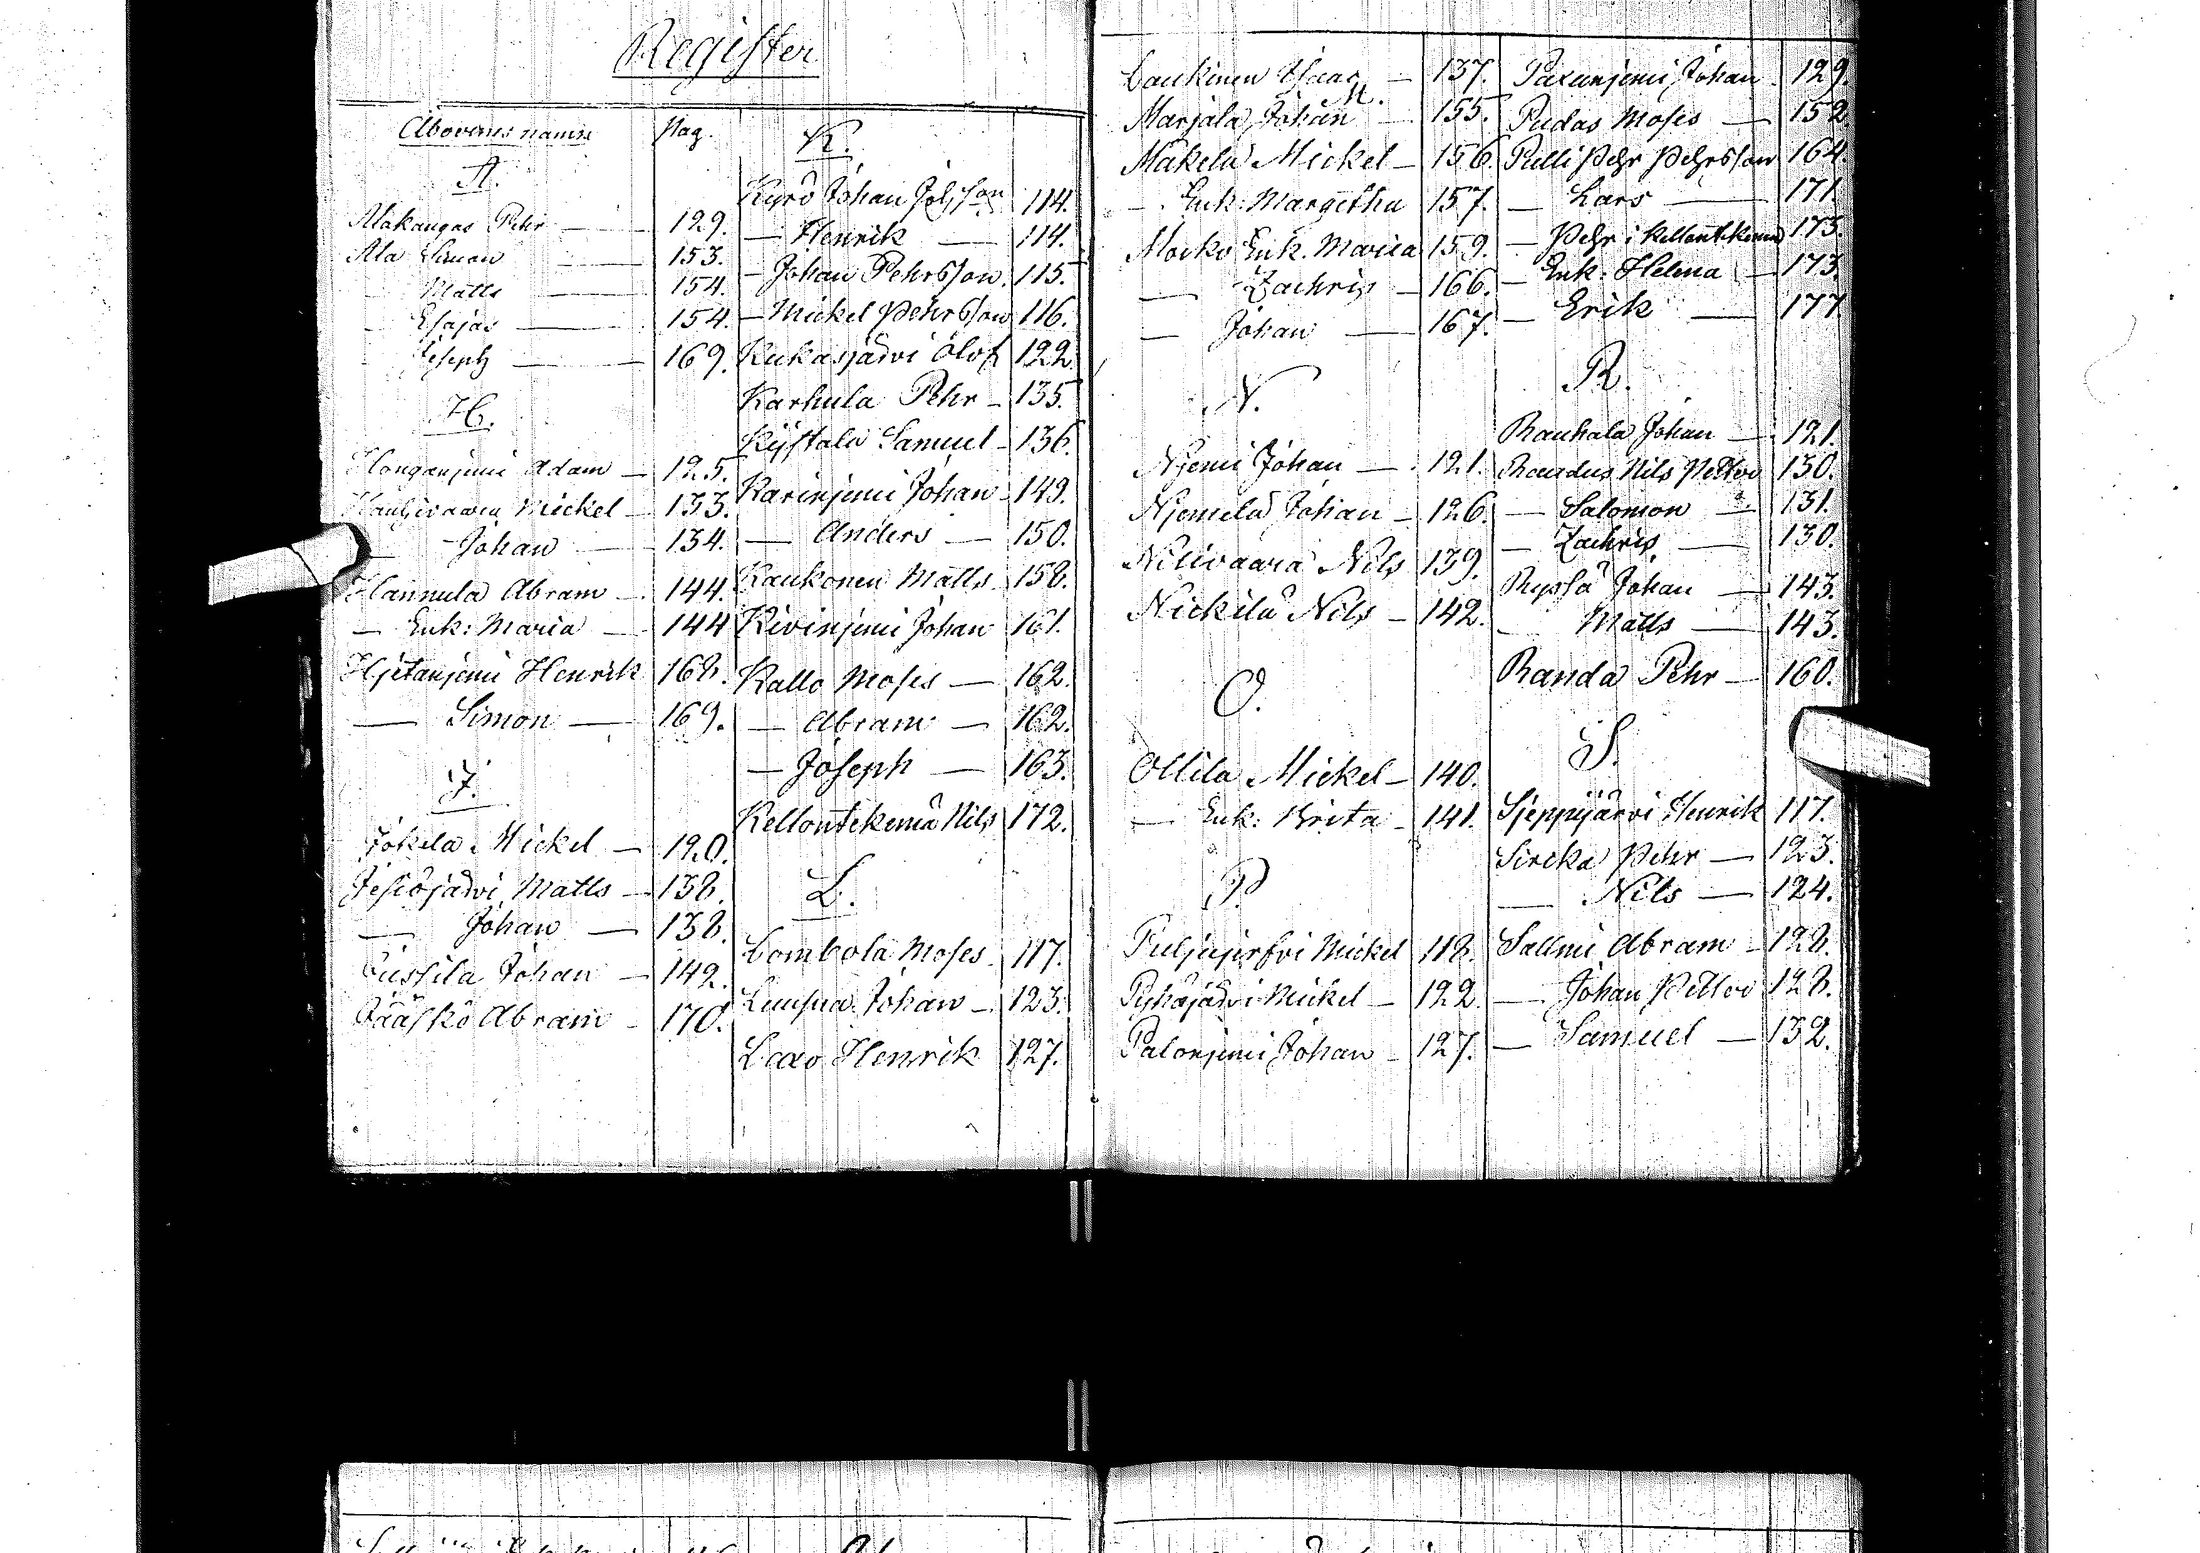 Register
Åboernes namn Pag.
A.
Alakangas Pehr 129.
Ala Simon 153.
Matts 154.
Esajas 154.
Joseph 169.
H.
Honganjemi Adam 125.
Mickel 133.
Johan 134.
Hannula Abram 144.
Enk: Maria 144
Hjetanjemi Henrik 168.
Simon 169.
J.
Jokela Mickel 120.
Jesiöjärvi Matts 138.
Johan 138.
Jussila Johan 142.
Jääskö Abram 170.
K.
Kyrö Johan Johsson 114.
Henrik 114.
Johan Pehrsson 115.
Mickel Pehrsson 116.
Kukasjärvi Olof 122.
Karhula Pehr 135.
Kystala Samuel 136.
Karinjemi Johan 149.
Anders 150.
Kaukonen Matts 158.
Kivinjemi Johan 161.
Kallo Moses 162.
Abram 162.
Joseph 163.
Kellontekemä Nils 172.
L.
Lombola Moses 117.
Luusua Johan 123.
Laxo Henrik 127.
Laukinen Isaac 137.
M.
Marjala Johan 155.
Mäkelä Mickel 156.
Enk: Margetha 157.
Mocko Enk. Maria 159.
Zachris 166.
Johan 167.
N.
Njemi Johan 121.
Njemelä Johan 126.
Nilivaara Nils 139.
Nickilä Nils 142.
O.
Ollila Mickel 140.
Enk: Brita 141.
P.
Puljujerfvi Mickel 118.
Pyhäjärvi Mickel 122.
Palonjemi Johan 127.
Paxanjemi Johan 129.
Pudas Moses 152
Pulli Pehr Pehrsson 164.
Lars 171.
Pehr i Kellontekemä 173.
Enk: Helena 173.
Erik 177.
R.
Rauhala Johan 121.
Raudus Nils Petter 130.
Salomon 131.
Zachris 130.
Ryssä Johan 143.
Matts 143.
Randa Pehr 160.
S.
Sjeppijärvi Henrik 117.
Sirckä Pehr 123.
Nils 124.
Sallmi Abram 128.
Johan Petter 128.
Samuel 132.